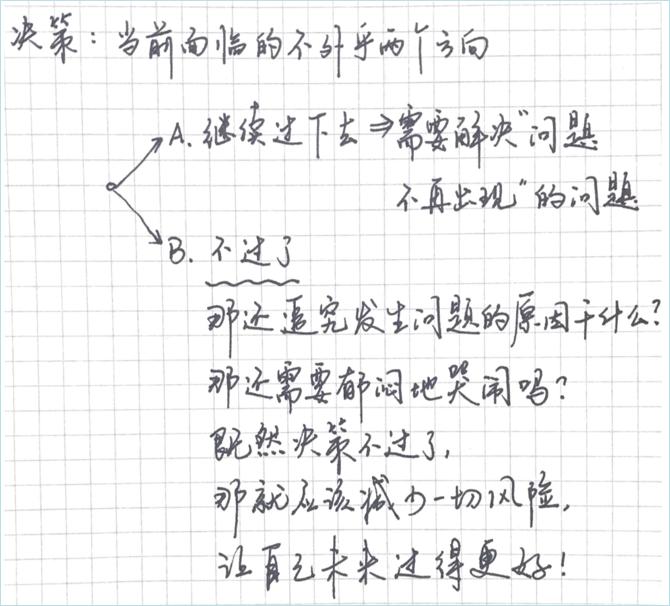 决策：当前面临的不外乎两个方向
A. 继续过下去 ⇒ 需要解决“问题
不再出现”的问题
B. 不过了
那还追究发生问题的原因干什么？
那还需要郁闷地哭闹吗？
既然决策不过了，
那就应该减少一切风险，
让自己未来过得更好！